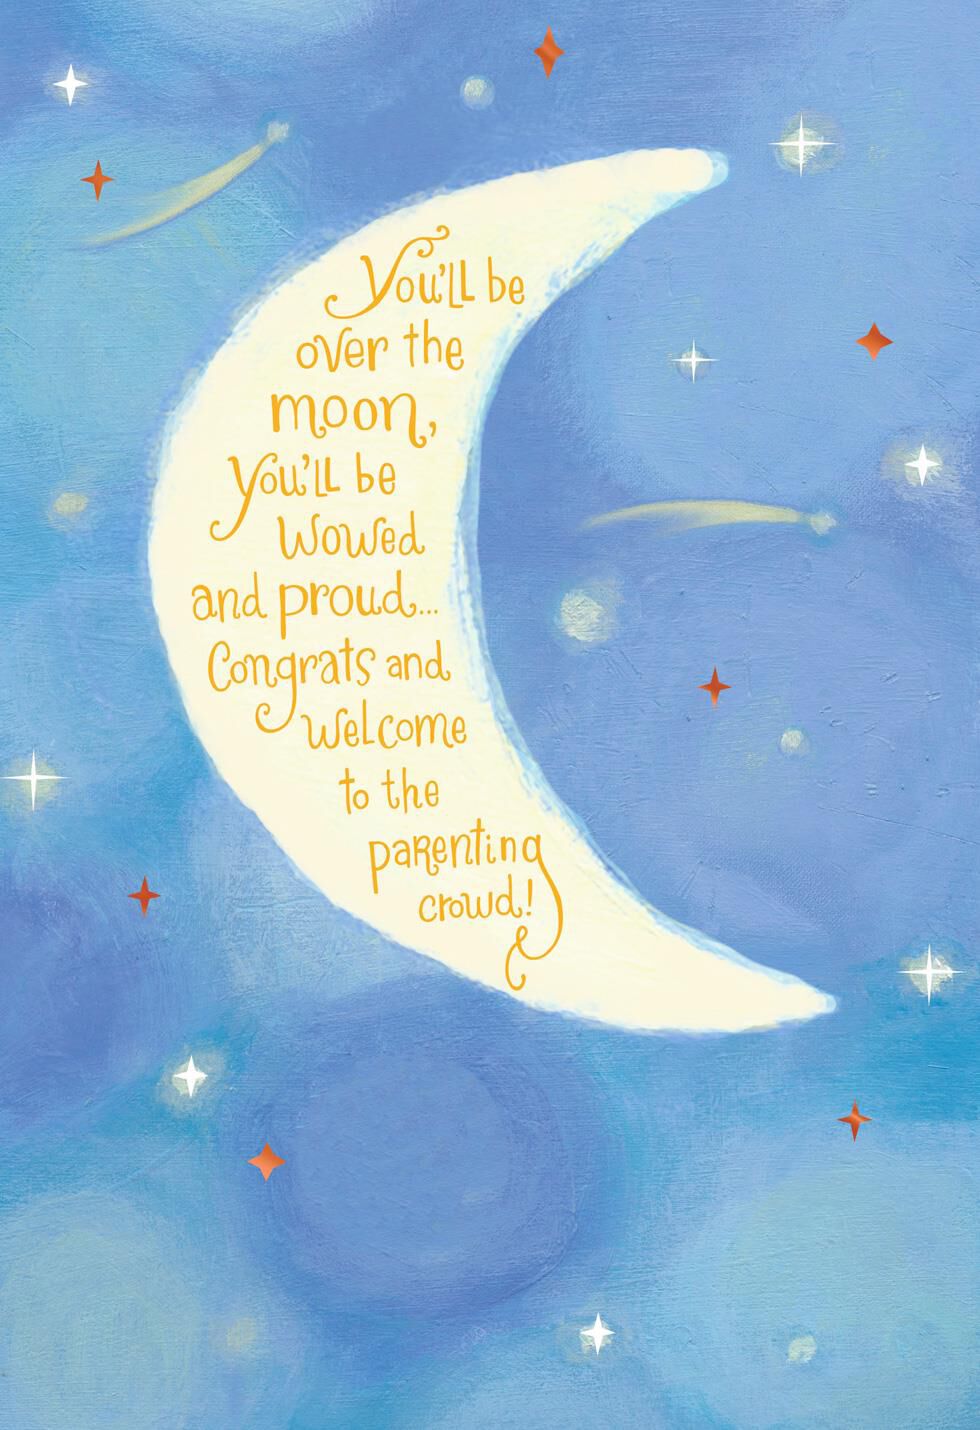 You'll be
over the
moon,
you'll be
wowed
and proud...
Congrats and
welcome
to the
parenting
crowd!